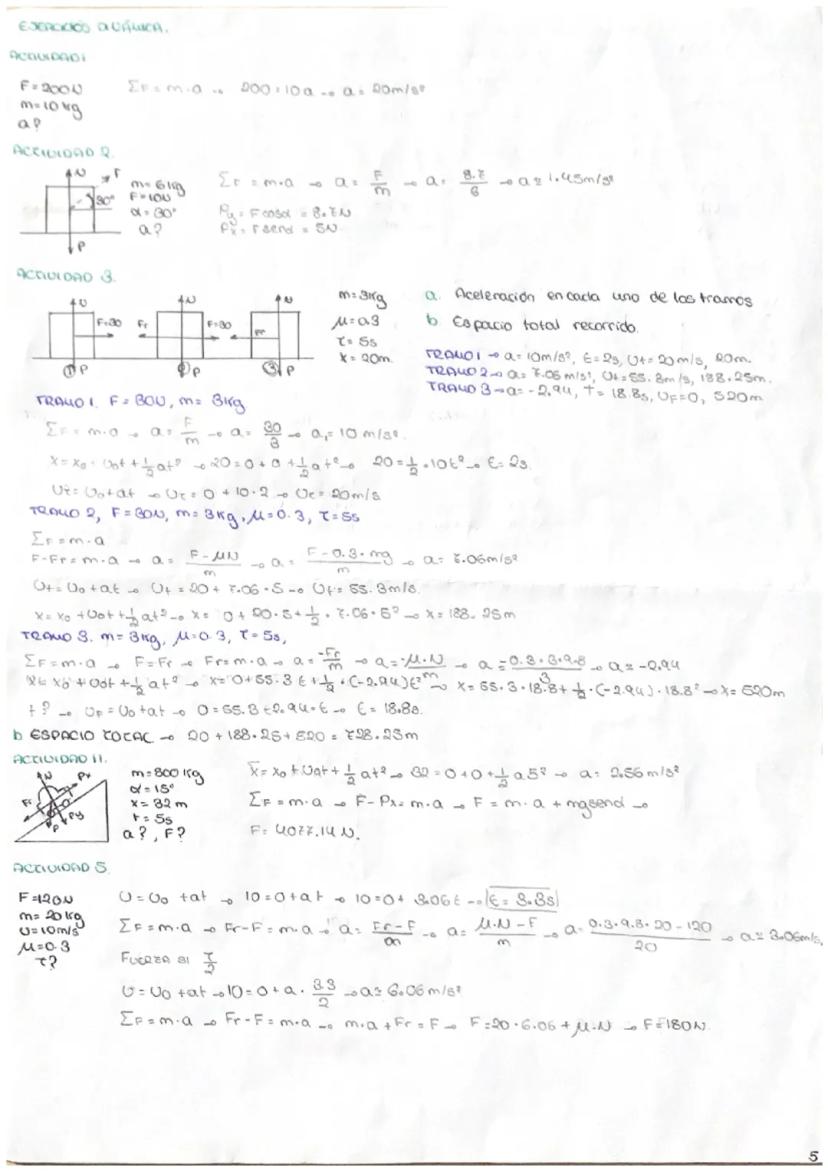 EJERCICIOS DINÁMICA.
ACTIVIDAD 1
F = 200N
m = 10 kg
a?
ΣF = m·a → 200 = 10a → a = 20m/s²
ACTIVIDAD 2.
N F
30°
P
m = 6kg
F = 10N
α = 30°
a?
ΣF = m·a → a = F/m → a = 8.7/6 → a ≈ 1.45m/s²
Py = F cosα = 8.7N
Px = F senα = 5N
ACTIVIDAD 3.
N F=30 P ①
N Fr F=30 P ②
N Fr P ③
m = 3kg
μ = 0.3
t = 5s
x = 20m.
a. Aceleración en cada uno de los tramos
b. Espacio total recorrido.
TRAMO 1 → a = 10m/s², t = 2s, Vf = 20m/s, 20m.
TRAMO 2 → a = 7.06 m/s², Vf = 55.3m/s, 188.25m.
TRAMO 3 → a = -2.94, t = 18.8s, VF = 0, 520m
TRAMO 1. F = 30N, m = 3kg
ΣF = m·a → a = F/m → a = 30/3 → a₁ = 10 m/s².
x = x₀ + V₀t + 1/2 at² → 20 = 0 + 0 + 1/2 at² → 20 = 1/2 · 10t² → t = 2s.
Vf = V₀ + at → Vf = 0 + 10·2 → Vf = 20m/s
TRAMO 2, F = 30N, m = 3kg, μ = 0.3, t = 5s
ΣF = m·a
F - Fr = m·a → a = F - μN/m → a = F - 0.3·mg/m → a = 7.06m/s²
Vf = V₀ + at → Vf = 20 + 7.06·5 → Vf = 55.3m/s.
x = x₀ + V₀t + 1/2 at² → x = 0 + 20·5 + 1/2 · 7.06·5² → x = 188.25m
TRAMO 3. m = 3kg, μ = 0.3, t = 5s,
ΣF = m·a → F = Fr → Fr = m·a → a = -Fr/m → a = -μ·N/m → a = 0.3·3·9.8/3 → a = -2.94
x = x₀ + V₀t + 1/2 at² → x = 0 + 55.3t + 1/2 · (-2.94)t² → x = 55.3·18.8 + 1/2 · (-2.94)·18.8² → x = 520m
t? → VF = V₀ + at → 0 = 55.3 + 2.94·t → t = 18.8s.
b ESPACIO TOTAL → 20 + 188.25 + 520 = 728.25m
ACTIVIDAD 11.
N Px Fr P Py
m = 800 kg
α = 15°
x = 32 m
t = 5s
a?, F?
x = x₀ + V₀t + 1/2 at² → 32 = 0 + 0 + 1/2 a5² → a = 2.56 m/s²
ΣF = m·a → F - Px = m·a → F = m·a + mgsenα →
F = 4077.14 N.
ACTIVIDAD 5.
F = 120N
m = 20 kg
V = 10m/s
μ = 0.3
t?
V = V₀ + at → 10 = 0 + at → 10 = 0 + 3.06t → t = 3.3s
ΣF = m·a → Fr - F = m·a → a = Fr - F/m → a = μ·N - F/m → a = 0.3·9.8·20 - 120/20 → a ≈ 3.06m/s,
FUERZA SI t/2
V = V₀ + at → 10 = 0 + a · 3.3/2 → a ≈ 6.06 m/s²
ΣF = m·a → Fr - F = m·a → m·a + Fr = F → F = 20·6.06 + μ·N → F = 180N.
5